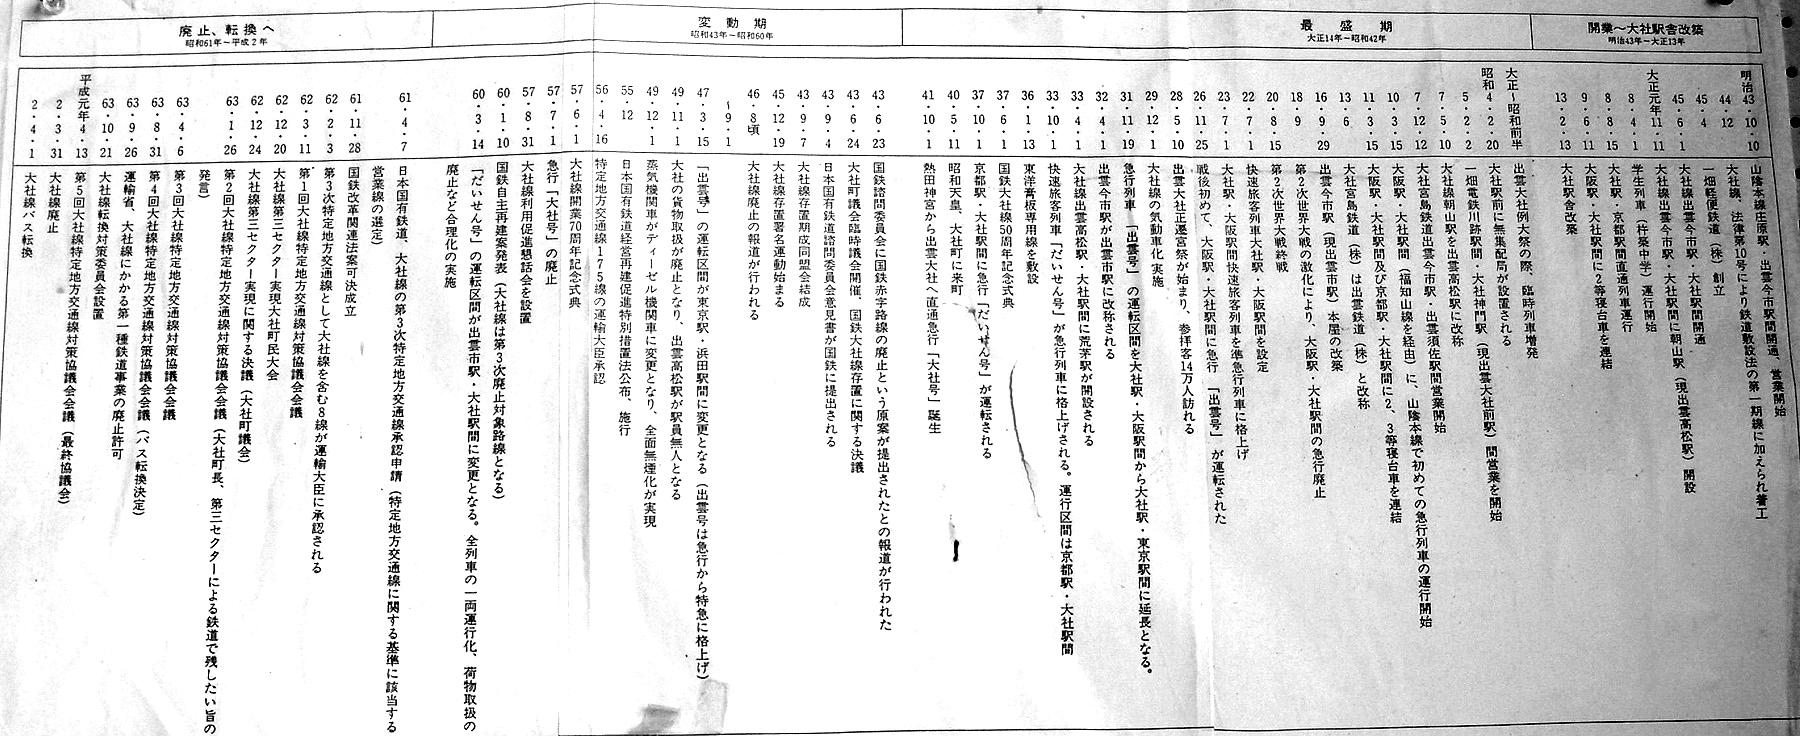 開業～大社駅舎改築
明治43年～大正13年
明治43・10・10 山陰本線庄原駅・出雲今市駅間開通、営業開始
44・12 大社線、法律第10号により鉄道敷設法の第一期線に加えられ着工
45・4 一畑軽便鉄道（株）創立
45・6・1 大社線出雲今市駅・大社駅間開通
大正元年11・11 大社線出雲今市駅・大社駅間に朝山駅（現出雲高松駅）開設
8・4・1 学生列車（杵築中学）運行開始
8・8・15 大社駅・京都駅間直通列車運行
9・11・11 大社駅・大阪駅間に2等寝台車を連結
13・2・13 大社駅舎改築
最盛期
大正14年～昭和42年
大正～昭和前半 出雲大社例大祭の際、臨時列車増発
昭和4・2・20 大社駅前に無集配局が設置される
5・2・2 一畑電鉄川跡駅間・大社神門駅（現出雲大社前駅）間営業を開始
7・5・10 大社線朝山駅を出雲高松駅に改称
7・12・12 大社宮島鉄道出雲今市駅・出雲須佐駅間営業開始
10・3・15 大阪駅・大社駅間（福知山線を経由）に、山陰本線で初めての急行列車の運行開始
11・3・15 大阪駅・大社駅間及び京都駅・大社駅間に2、3等寝台車を連結
13・6 大社宮島鉄道（株）は出雲鉄道（株）と改称
16・9・29 出雲今市駅（現出雲市駅）本屋の改築
18・9 第2次世界大戦の激化により、大阪駅・大社駅間の急行廃止
20・8・15 第2次世界大戦終戦
22・7・1 大社駅・大阪駅間快速旅客列車大社駅・大阪駅間を設定
23・7・1 快速旅客列車を準急行列車に格上げ
26・11・25 戦後初めて、大阪駅・大社駅間に急行「出雲号」が運転された
28・5・10 出雲大社正遷宮祭が始まり、参拝客14万人訪れる
29・12・1 大社線の気動車化実施
31・11・19 急行列車「出雲号」の運転区間を大社駅・大阪駅間から大社駅・東京駅間に延長となる。
32・4・1 出雲今市駅が出雲市駅に改称される
33・4・1 大社線出雲高松駅・大社駅間に荒茅駅が開設される
33・10・1 快速旅客列車「だいせん号」が急行列車に格上げされる。運行区間は京都駅・大社駅間
36・1・13 東洋高板専用線を敷設
37・6・1 国鉄大社線50周年記念式典
37・10・1 京都駅・大社駅間に急行「だいせん号」が運転される
40・5・11 昭和天皇、大社町に来町
41・10・1 熱田神宮から出雲大社へ直通急行「大社号」誕生
変動期
昭和43年～昭和60年
43・6・23 国鉄諮問委員会に国鉄赤字路線の廃止という原案が提出されたとの報道が行われた
43・6・24 大社町議会臨時議会開催、国鉄大社線存置に関する決議
43・9・4 日本国有鉄道諮問委員会意見書が国鉄に提出される
43・9・7 大社線存置期成同盟会結成
45・12・19 大社線存置署名運動始まる
46・8頃～9・1 大社線廃止の報道が行われる
47・3・15 「出雲号」の運転区間が東京駅・浜田駅間に変更となる（出雲号は急行から特急に格上げ）
49・11・1 大社の貨物取扱が廃止となり、出雲高松駅が駅員無人となる
49・12・1 蒸気機関車がディーゼル機関車に変更となり、全面無煙化が実現
55・12 日本国有鉄道経営再建促進特別措置法公布、施行
56・4・16 特定地方交通線175線の運輸大臣承認
57・6・1 大社線開業70周年記念式典
57・7・1 急行「大社号」の廃止
57・8・31 大社線利用促進懇話会を設置
60・1・10 国鉄自主再建案発表（大社線は第3次廃止対象路線となる）
60・3・14 「だいせん号」の運転区間が出雲市駅・大社駅間に変更となる。全列車の一両運行化、荷物取扱の
廃止など合理化の実施
廃止、転換へ
昭和61年～平成2年
61・4・7 日本国有鉄道、大社線の第3次特定地方交通線承認申請（特定地方交通線に関する基準に該当する
営業線の選定）
61・11・28 国鉄改革関連法案可決成立
62・2・3 第3次特定地方交通線として大社線を含む8線が運輸大臣に承認される
62・3・11 第1回大社線特定地方交通線対策協議会会議
62・12・20 大社線第三セクター実現大社町民大会
62・12・24 大社線第三セクター実現に関する決議（大社町議会）
63・1・26 第2回大社線特定地方交通線対策協議会会議（大社町長、第三セクターによる鉄道で残したい旨の
発言）
63・4・6 第3回大社線特定地方交通線対策協議会会議
63・8・31 第4回大社線特定地方交通線対策協議会会議（バス転換決定）
63・9・26 運輸省、大社線にかかる第一種鉄道事業の廃止許可
63・10・21 大社線転換対策委員会設置
平成元年4・13 第5回大社線特定地方交通線対策協議会会議（最終協議会）
2・3・31 大社線廃止
2・4・1 大社線バス転換